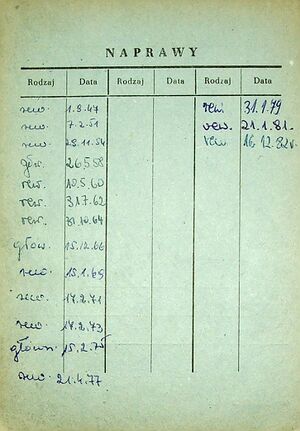 NAPRAWY
Rodzaj Data Rodzaj Data Rodzaj Data
rew. 1.8.47
rew. 7.2.51
rew. 28.11.54
głów. 26.5.58
rew. 10.5.60
rew. 31.7.62
rew. 31.10.64
głów. 15.12.66
rew. 15.1.69
rew. 17.2.71
rew. 17.2.73
główn. 15.2.75
rew. 21.4.77
rew. 31.1.79
rew. 21.1.81.
rew. 16.12.82r.